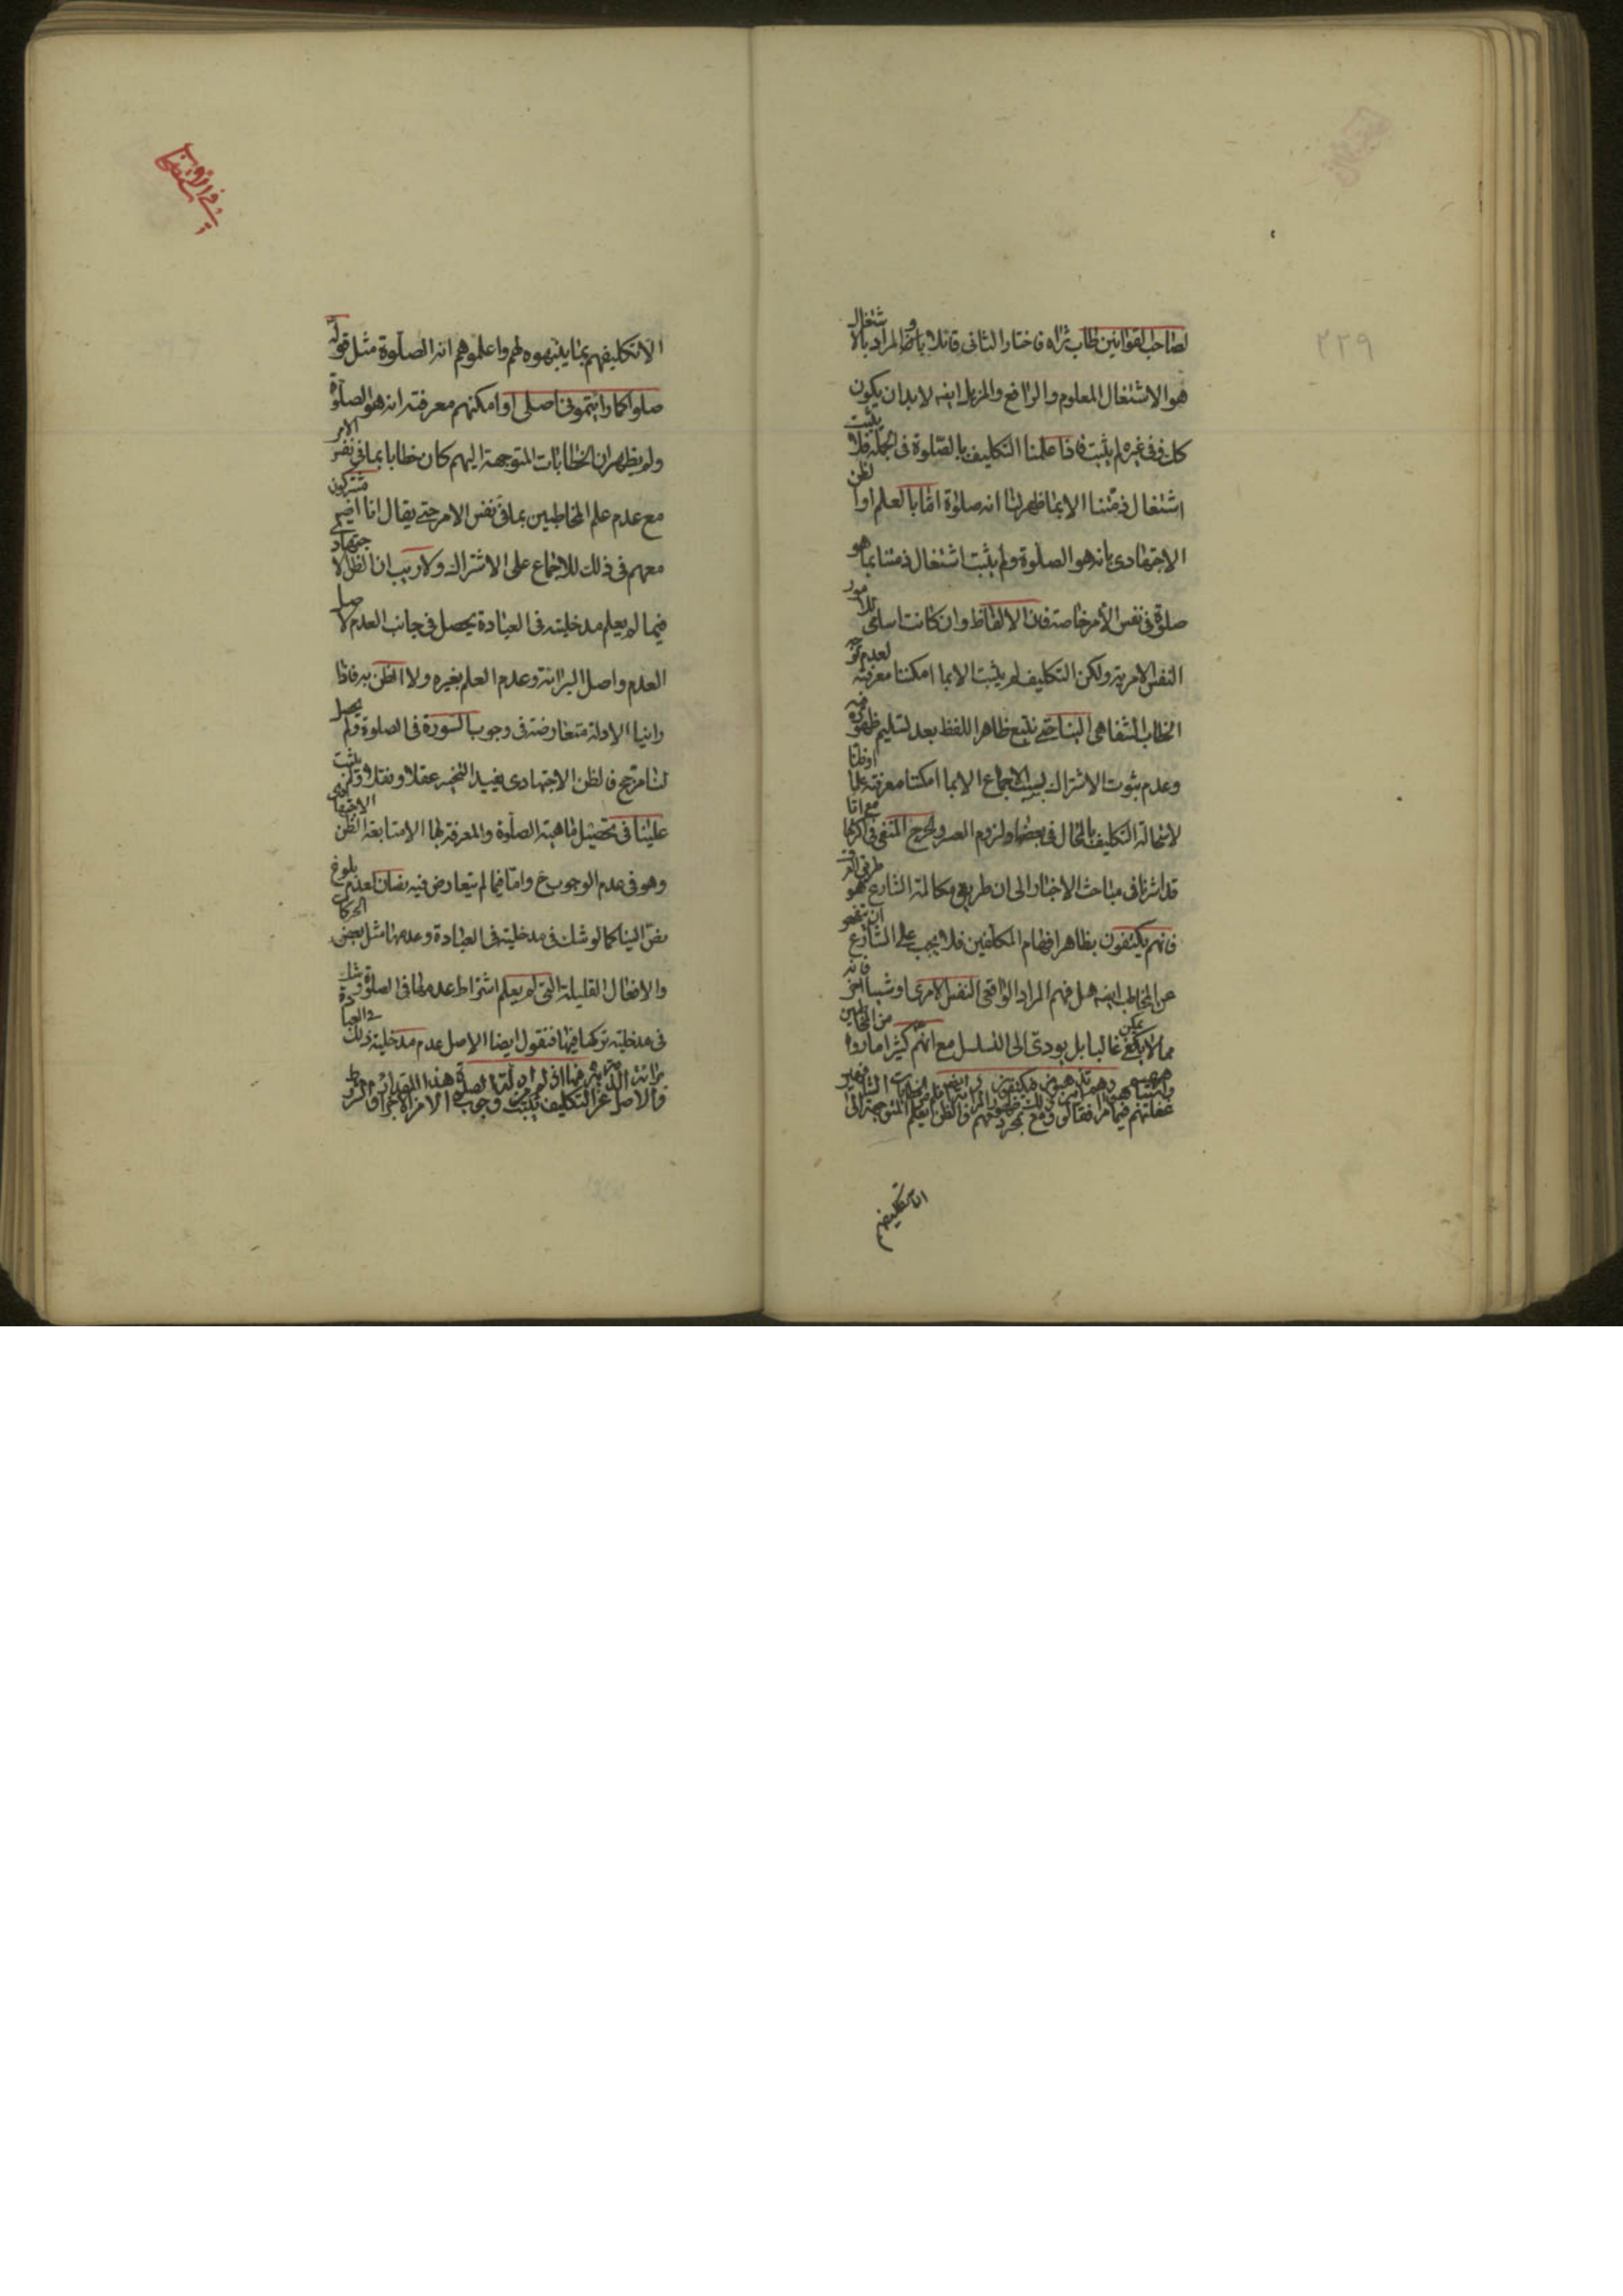 لصاحب القوانين طاب ثراه فاختار الثانى قائلا بان المراد بالاشتغال
هو الاشتغال المعلوم والرافع والمزيل ايضا لابدان يكون
كل ففى غيره لم يثبت فاذا علمنا التكليف بالصلوة فى الجملة فلا يثبت
اشتغال ذمتنا الا بما ظهر لنا انه صلوة اما بالعلم او الظن
الاجتهادى بانه هو الصلوة ولم يثبت اشتغال ذمتنا بما هو
صلوة فى نفس الأمر خاصة فان الالفاظ وان كانت اسامى للامور
النفس الامرية ولكن التكليف لم يثبت الا بما امكننا معرفته لعدم توجه
الخطاب الشفاهى الينا حتى نتبع ظاهر اللفظ بعد تسليم ظهوره فيه
وعدم ثبوت الاشتراك بسبب الاجماع الا بما امكننا معرفته علما او ظنا
لاستحالة التكليف بالمحال فى بعضها ولزوم العسر والحرج المنفى فى اكثرها مع انا
قد اشرنا فى مباحث الاخبار الى ان طريقى مكالمة الشارع هو طريقى العرف
فانهم يكتفون بظاهر افهام المكلفين فلا يجب على الشارع ان يتفحص
عن المخاطب ايضا هل فهم المراد الواقعى النفس الامرى او شيئا اخر فانه
مما لا يمكن غالبا بل يودى الى التسلسل مع انهم كثيرا ما راوا من المخاطبين
الا تكليفهم
الا تكليفهم بما ينبهوه لهم واعلموهم انه الصلوة مثل قوله
صلوا كما رايتمونى اصلى او امكنهم معرفته انه هو الصلوة
ولم يظهر ان الخطابات المتوجهة اليهم كان خطابا بما فى نفس الامر
مع عدم علم المخاطبين بما فى نفس الامر حتى يقال انا ايضا مشتركون
معهم فى ذلك للاجماع على الاشتراك ولا ريب ان الظن الاجتهادى
فيما لم يعلم مدخليته فى العبادة يحصل فى جانب العدم لاصل
العدم واصل البرائة وعدم العلم بغيره ولا الظن به فاذا
راينا الادلة متعارضة فى وجوب السورة فى الصلوة ولم يحصل
لنا مرجح فالظن الاجتهادى يفيد التخيير عقلا ونقلا ولم يثبت
علينا فى تحصيل ماهية الصلوة والمعرفة لها الا متابعة الظن الاجتهادى
وهو فى عدم الوجوب ح واما فيما لم يتعارض فيه نصان لعدم بلوغ
نص الينا كما لو شك فى مدخليته فى العبادة وعدمها مثل بعض الحركات
والافعال القليلة التى لم يعلم اشتراط عدمها فى الصلوة وشك
فى مدخلية تركها فيها فنقول ايضا الاصل عدم مدخلية ذلك فى العبادة